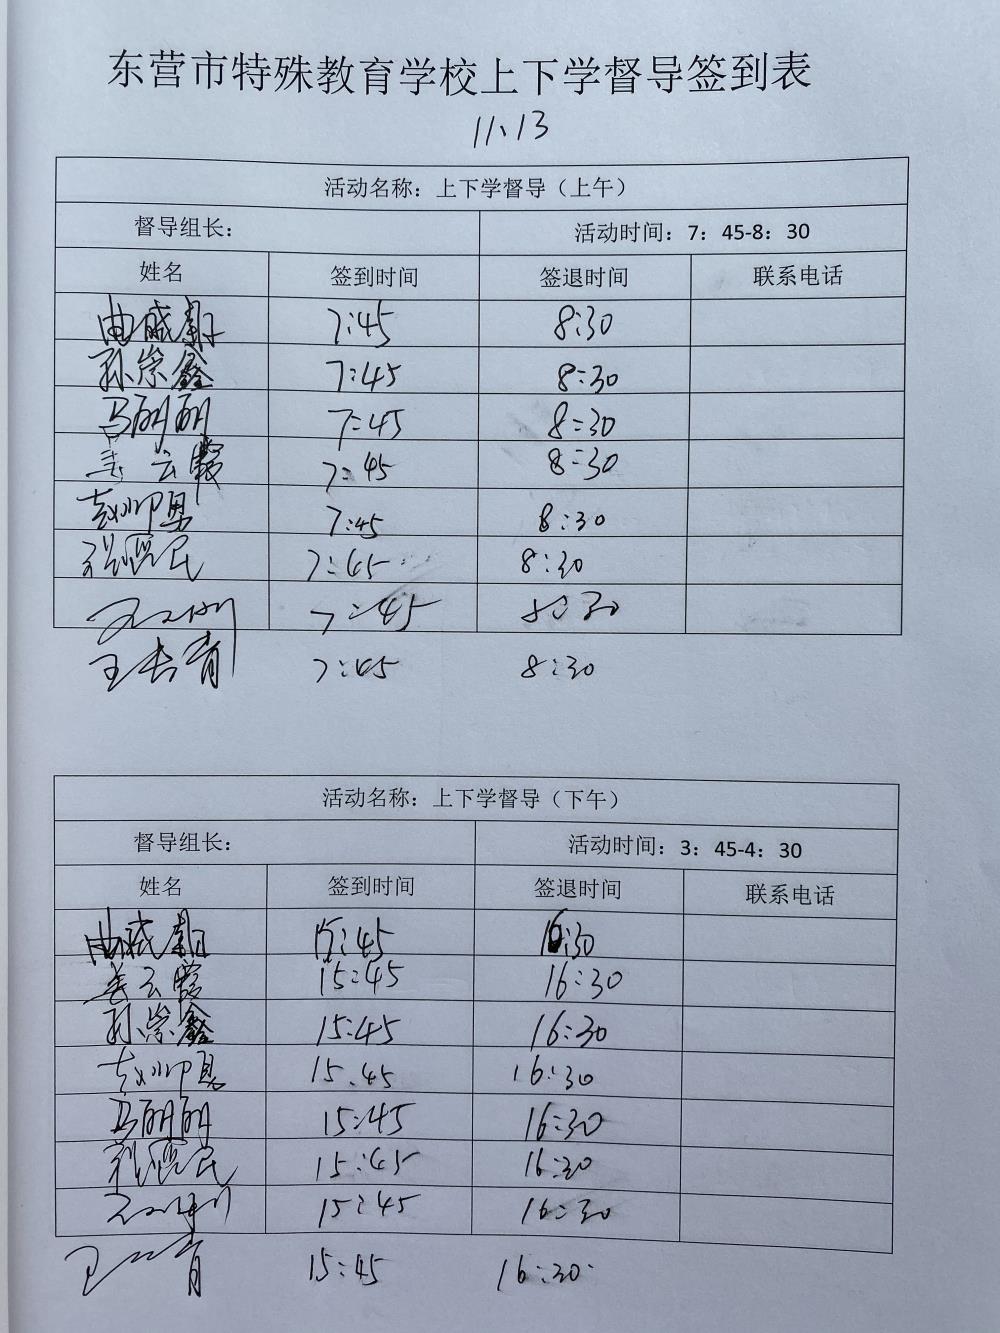 东营市特殊教育学校上下学督导签到表
11、13
活动名称：上下学督导（上午）
督导组长： 活动时间：7：45-8：30
姓名 签到时间 签退时间 联系电话
7:45 8:30
孙崇鑫 7:45 8:30
马丽丽 7:45 8:30
姜云霞 7:45 8:30
7:45 8:30
7:45 8:30
7:45 8:30
王长青 7:45 8:30
活动名称：上下学督导（下午）
督导组长： 活动时间：3：45-4：30
姓名 签到时间 签退时间 联系电话
15:45 16:30
姜云霞 15:45 16:30
孙崇鑫 15:45 16:30
15.45 16:30
马丽丽 15:45 16:30
15:45 16:30
15:45 16:30
15:45 16:30